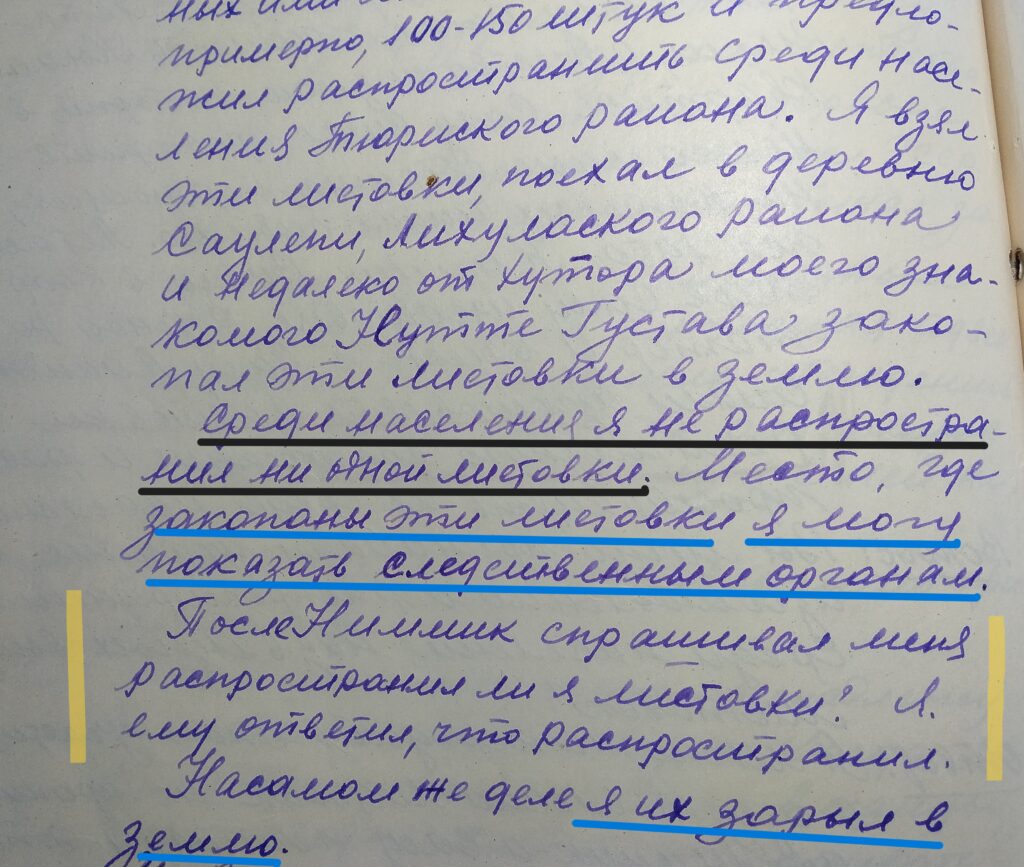 примерно, 100-150 штук и предло-
жил распространить среди насе-
ления Тюриского района. Я взял
эти листовки, поехал в деревню
Саулепи, Лихулаского района
и недалеко от хутора моего зна-
комого Нутте Густава зако-
пал эти листовки в землю.
Среди населения я не распростра-
нил ни одной листовки. Место, где
закопаны эти листовки я могу
показать следственным органам.
После Ниммик спрашивал меня
распространил ли я листовки? Я.
ему ответил, что распространил.
На самом же деле я их зарыл в
землю.